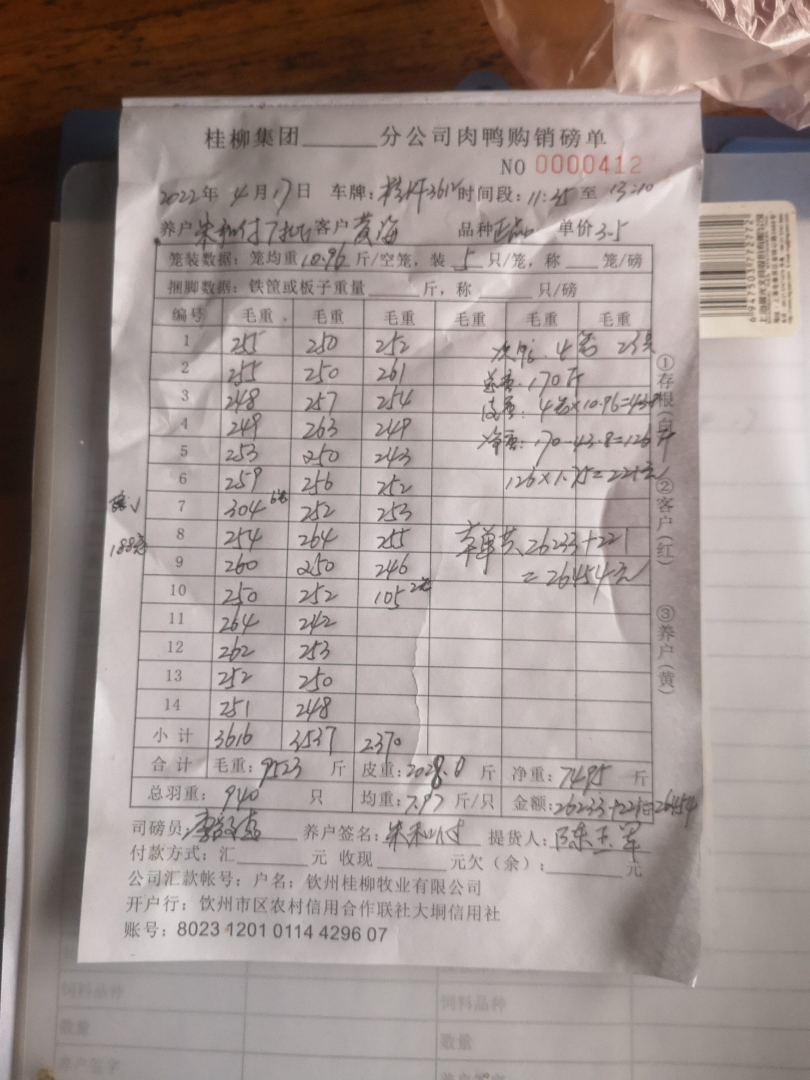 桂柳集团______分公司肉鸭购销磅单
NO 0000412
2022年 4月17日 车牌: 3619 时间段: 11:35 至 13:10
养户 朱和付 客户 黄海 品种 正品 单价 3.5
笼装数据: 笼均重 10.96 斤/空笼, 装 5 只/笼, 称___笼/磅
捆脚数据: 铁筐或板子重量______斤, 称______只/磅
编号 毛重 毛重 毛重 毛重 毛重 毛重
1 255 250 252
2 255 250 261
3 248 257 254
4 249 263 249
5 253 250 243
6 259 256 252
7 304 6笼 252 253
8 254 264 255
9 260 250 246
10 250 252 105 2笼
11 264 242
12 262 253
13 252 250
14 251 248
小计 3616 3537 2370
4笼 23只
170斤
皮重: 4笼×10.96=43.8
净重: 170-43.8=126斤
126×1.75=221元
本单共 26233+221
=26454元
188笼
合计 毛重: 9523 斤 皮重: 2028.0 斤 净重: 7495 斤
总羽重: 940 只 均重: 7.97 斤/只 金额: 26233+221=26454
司磅员 养户签名: 朱和付 提货人: 陈玉军
付款方式: 汇______元 收现______元欠(余): ______元
公司汇款帐号: 户名: 钦州桂柳牧业有限公司
开户行: 钦州市区农村信用合作联社大垌信用社
账号: 8023 1201 0114 4296 07
①存根(白)
②客户(红)
③养户(黄)
6947503772772
饲料品种
饲料品种
数量
数量
养户签字